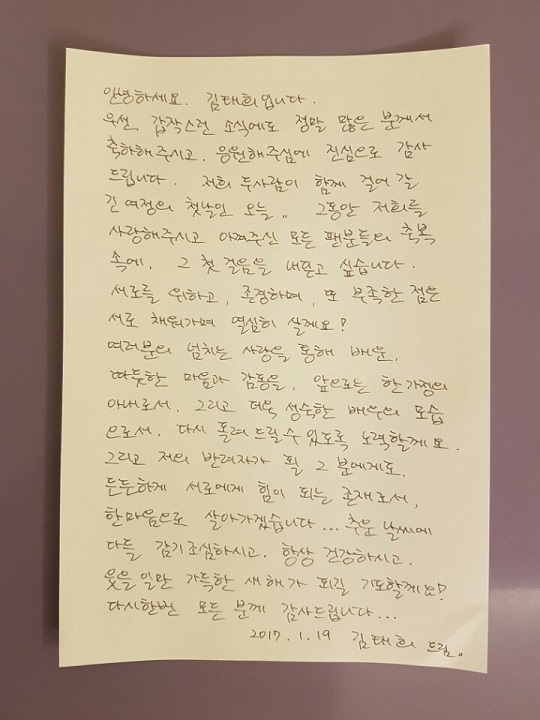 안녕하세요. 김태희입니다.
우선 갑작스런 소식에도 정말 많은 분께서
축하해주시고. 응원해주심에 진심으로 감사
드립니다. 저희 두사람이 함께 걸어 갈
긴 여정의 첫날인 오늘.. 그동안 저희를
사랑해주시고 아껴주신 모든 팬분들의 축복
속에, 그 첫 걸음을 내딛고 싶습니다.
서로를 위하고, 존경하며, 또 부족한 점은
서로 채워가며 열심히 살께요!
여러분의 넘치는 사랑을 통해 배운,
따뜻한 마음과 감동을, 앞으로는 한 가정의
아내로서, 그리고 더욱 성숙한 배우의 모습
으로서. 다시 돌려 드릴 수 있도록 노력할께요.
그리고 저의 반려자가 될 그 분에게도.
든든하게 서로에게 힘이 되는 존재로서,
한마음으로 살아가겠습니다... 추운 날씨에
다들 감기조심하시고. 항상 건강하시고.
웃을 일만 가득한 새해가 되길 기도할께요!
다시한번 모든 분께 감사드립니다...
2017. 1. 19 김태희 드림..